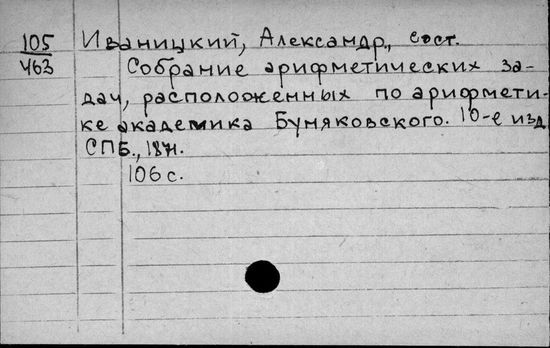 105 Иваницкий, Александр., сост.
463 Собрание арифметических за-
дач, расположенных по арифмети-
ке академика Буняковского. 10-е изд
СПБ., 1871.
106 с.